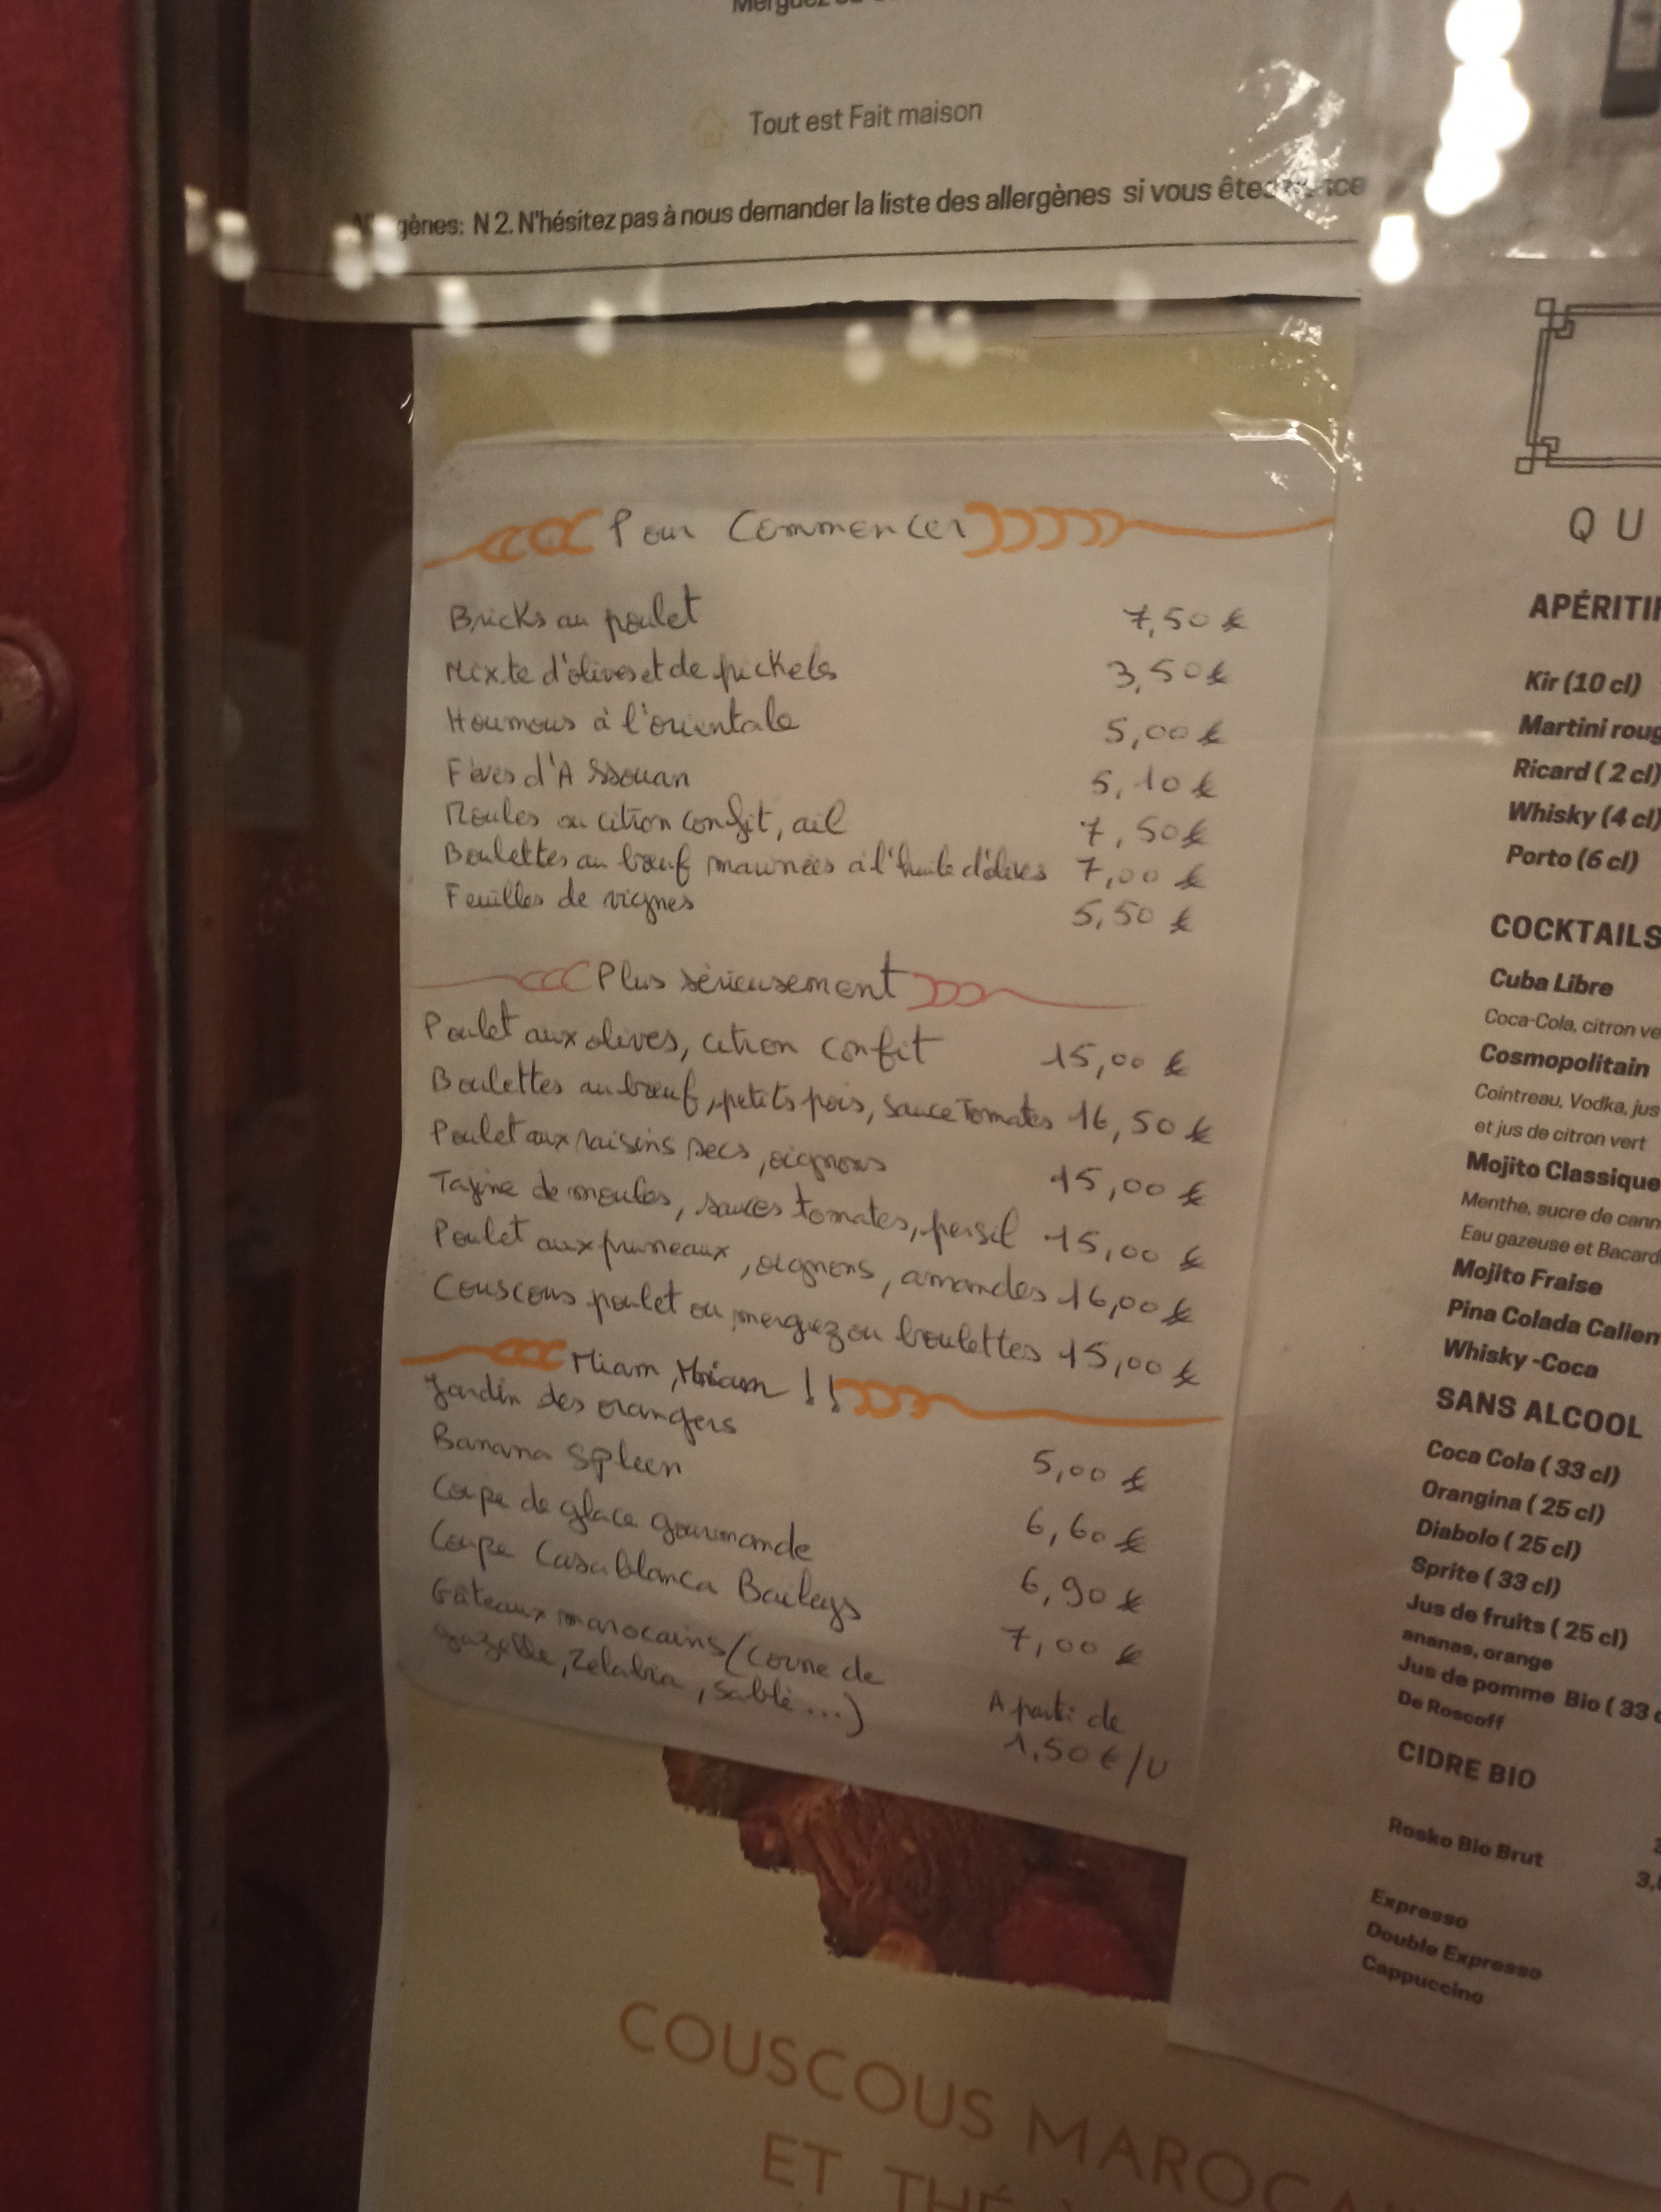 Tout est Fait maison
N 2. N'hésitez pas à nous demander la liste des allergènes si vous
Pour Commencer
Bricks au poulet 7,50 €
Mixte d'olives et de pickels 3,50 €
Houmous à l'orientale 5,00 €
Fèves d'Assouan 5,10 €
Moules au citron confit, ail 7,50 €
Boulettes au bœuf marinées à l'huile d'olives 7,00 €
Feuilles de vignes 5,50 €
Plus sérieusement
Poulet aux olives, citron confit 15,00 €
Boulettes au bœuf, petits pois, sauce Tomates 16,50 €
Poulet aux raisins secs, oignons 15,00 €
Tajine de moules, sauces tomates, persil 15,00 €
Poulet aux pruneaux, oignons, amandes 16,00 €
Couscous poulet ou merguez ou boulettes 15,00 €
Miam, Miam !!
Jardin des orangers 5,00 €
Banana Spleen 6,60 €
Coupe de glace gourmande 6,90 €
Coupe Casablanca Baileys 7,00 €
Gâteaux marocains (corne de
gazelle, Zelabia, sablé...) A parti de
1,50 €/U
COUSCOUS
ET
QU
APÉRITIF
Kir (10 cl)
Martini roug
Ricard ( 2 cl)
Whisky (4 cl)
Porto (6 cl)
COCKTAILS
Cuba Libre
Coca-Cola, citron ve
Cosmopolitain
Cointreau, Vodka, jus
et jus de citron vert
Mojito Classique
Menthe, sucre de cann
Eau gazeuse et Bacard
Mojito Fraise
Pina Colada Calien
Whisky -Coca
SANS ALCOOL
Coca Cola ( 33 cl)
Orangina ( 25 cl)
Diabolo ( 25 cl)
Sprite ( 33 cl)
Jus de fruits ( 25 cl)
ananas, orange
Jus de pomme Bio ( 33 c
De Roscoff
CIDRE BIO
Rosko Bio Brut
Expresso
Double Expresso
Cappuccino